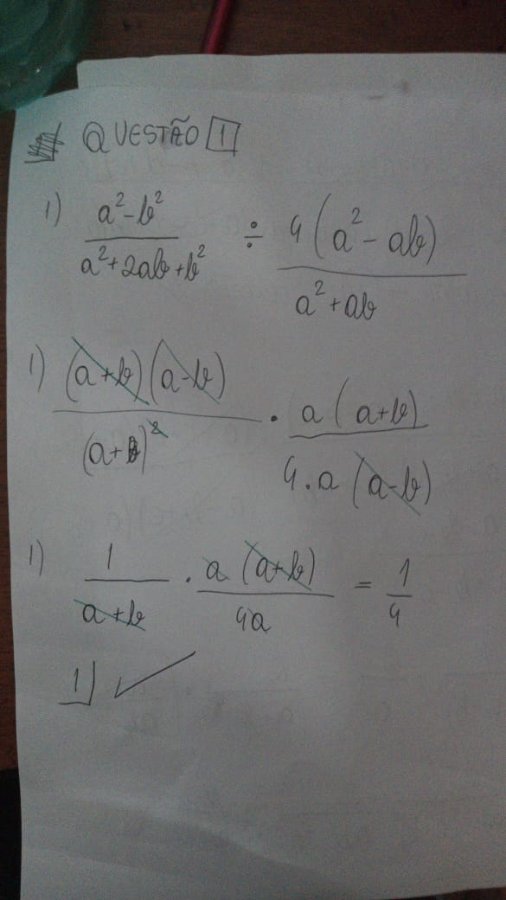 QUESTÃO 1
1) (a²-b²)/(a²+2ab+b²) ÷ 4(a²-ab)/(a²+ab)
1) (a+b)(a-b)/(a+b)² · a(a+b)/(4.a(a-b))
1) 1/(a+b) · a(a+b)/(4a) = 1/4
1